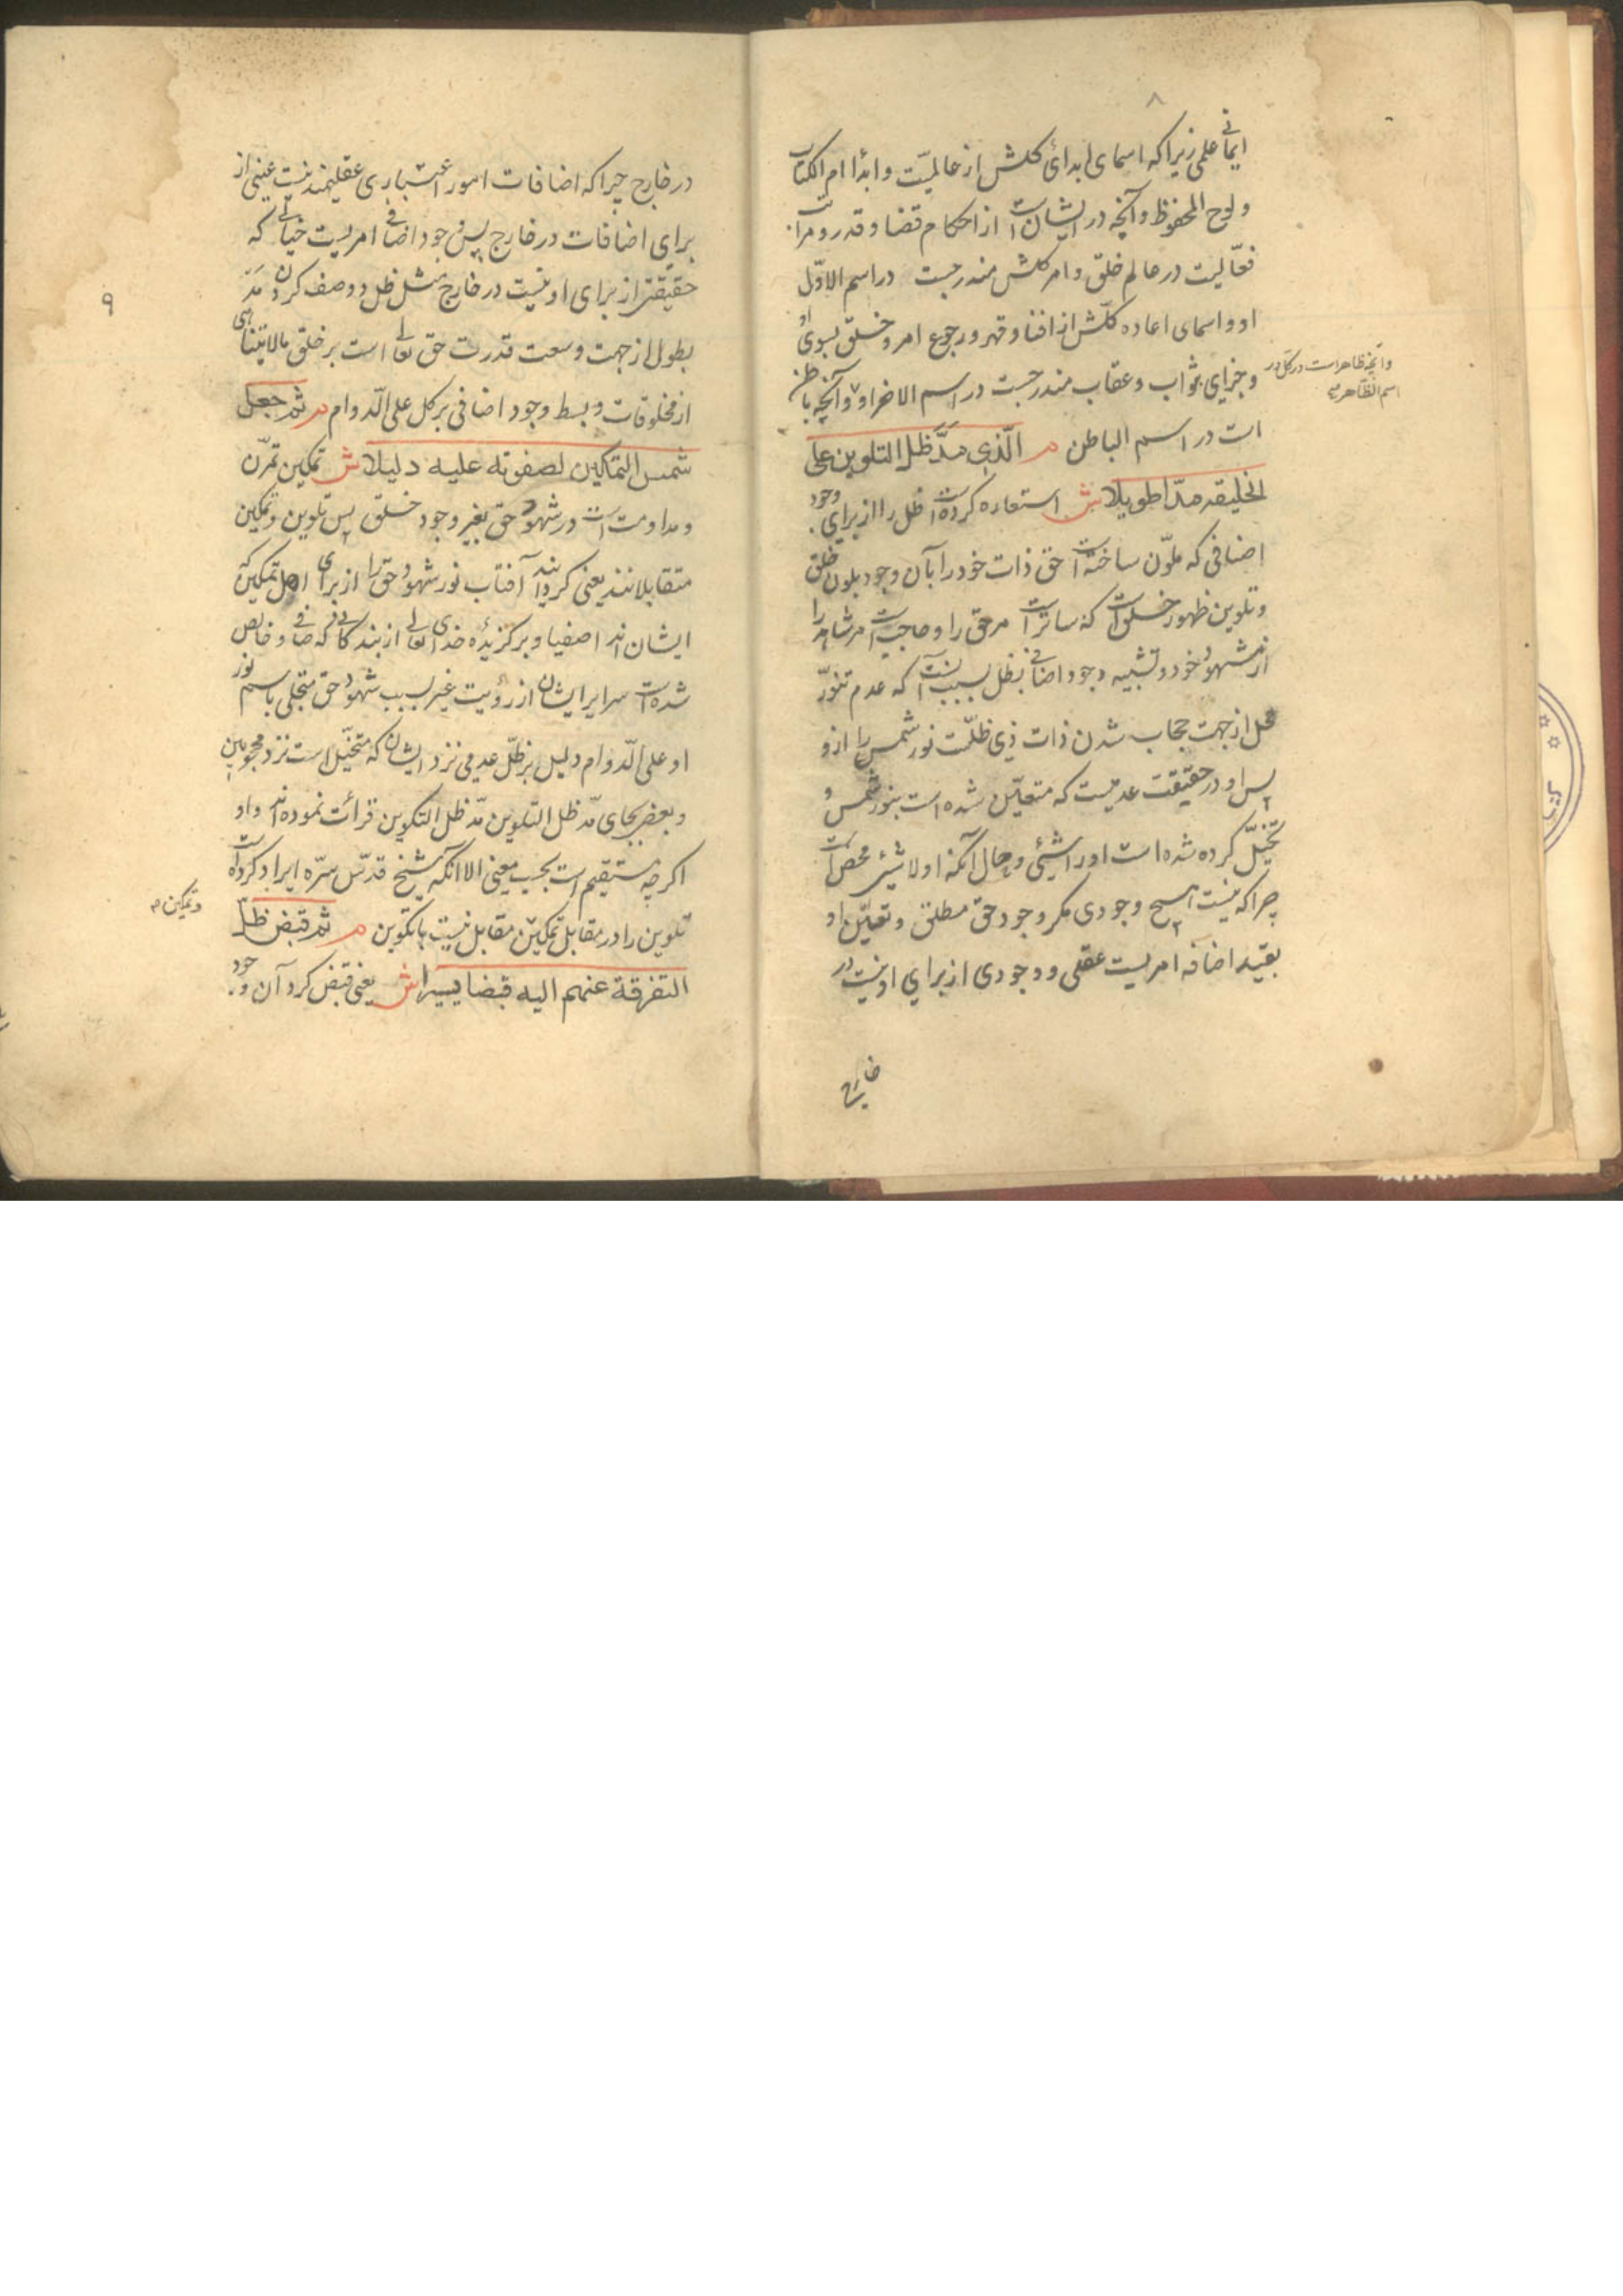 ۸
ایمانی علمی زیرا که اسمای ابدائی کلش از عالمیّت و ابدا ام الکتاب
ولوح المحفوظ و آنچه در ایشانست از احکام قضا و قدر و مراتب
فعّالیت در عالم خلق و امر کلش مندرجست در اسم الاوّل
او و اسمای اعاده کلّش از افنا و قهر و رجوع امر و خلق بسوی او
و جزای بثواب و عقاب مندرجست در اسم الاخر او و آنچه باطن
است در اسم الباطن م الّذی مدَّ ظل التلوین علی
الخلیقه مدّا طویلا ش استعاره کرده است ظل را از برای وجود
اضافی که ملوّن ساخته است حق ذات خود را بآن وجود بلون خلق
و تلوین ظهور خلق است که ساتر است مر حق را و حاجب است مر شاهد را
از شهود خود و تشبیه وجود اضافی بظل بسبب آنست که عدم تنوّر
محل از جهت حجاب شدن ذات ذی ظلّست نور شمس را ازو
پس او در حقیقت عدمیست که متعیّن شده است بنور شمس و
تخیّل کرده شده است او را شیئی و حال آنکه او لا شیئ محض است
چرا که نیست هیچ وجودی مگر وجود حق مطلق و تعیّن او
بقید اضافه امریست عقلی و وجودی از برای او نیست در
خارج
وآنچه ظاهر است در کل در
اسم الظّاهر
۹
در خارج چرا که اضافات امور اعتباری عقلیند نیست عینی از
برای اضافات در خارج پس وجود اضافی امریست خیالی که
حقیقتی از برای او نیست در خارج مثل ظل و وصف کردن مدّ
بطول از جهت وسعت قدرت حق تعالی است بر خلق مالایتناهی
از مخلوقات و بسط وجود اضافی بر کل علی الدّوام م ثم جعل
شمس التمکین لصفوته علیه دلیلا ش تمکین تمرّن
و مداومت است در شهود حق بغیر وجود خلق پس تلوین و تمکین
متقابلانند یعنی کردانید آفتاب نور شهود حق را از برای اهل تمکین که
ایشان اند اصفیا و برکزیده خدای تعالی از بندکانی که صافی و خالص
شده است سرایر ایشان از رؤیت غیر بسبب شهود حق متجلی باسم نور
او علی الدّوام دلیل بر ظلّ عدمی نزد ایشان که متخیّل است نزد محجوبین
و بعضی بجای مدّ ظل التلوین مدّ ظل التکوین قرائت نموده اند و او
اکرچه مستقیم است بحسب معنی الا آنکه شیخ قدّس سرّه ایراد کرده است
تلوین را در مقابل تمکین مقابل نیست با تکوین م ثم قبض ظلّ
التفرقة عنهم الیه قبضا یسیرا ش یعنی قبض کرد آن وجود
و تمکین